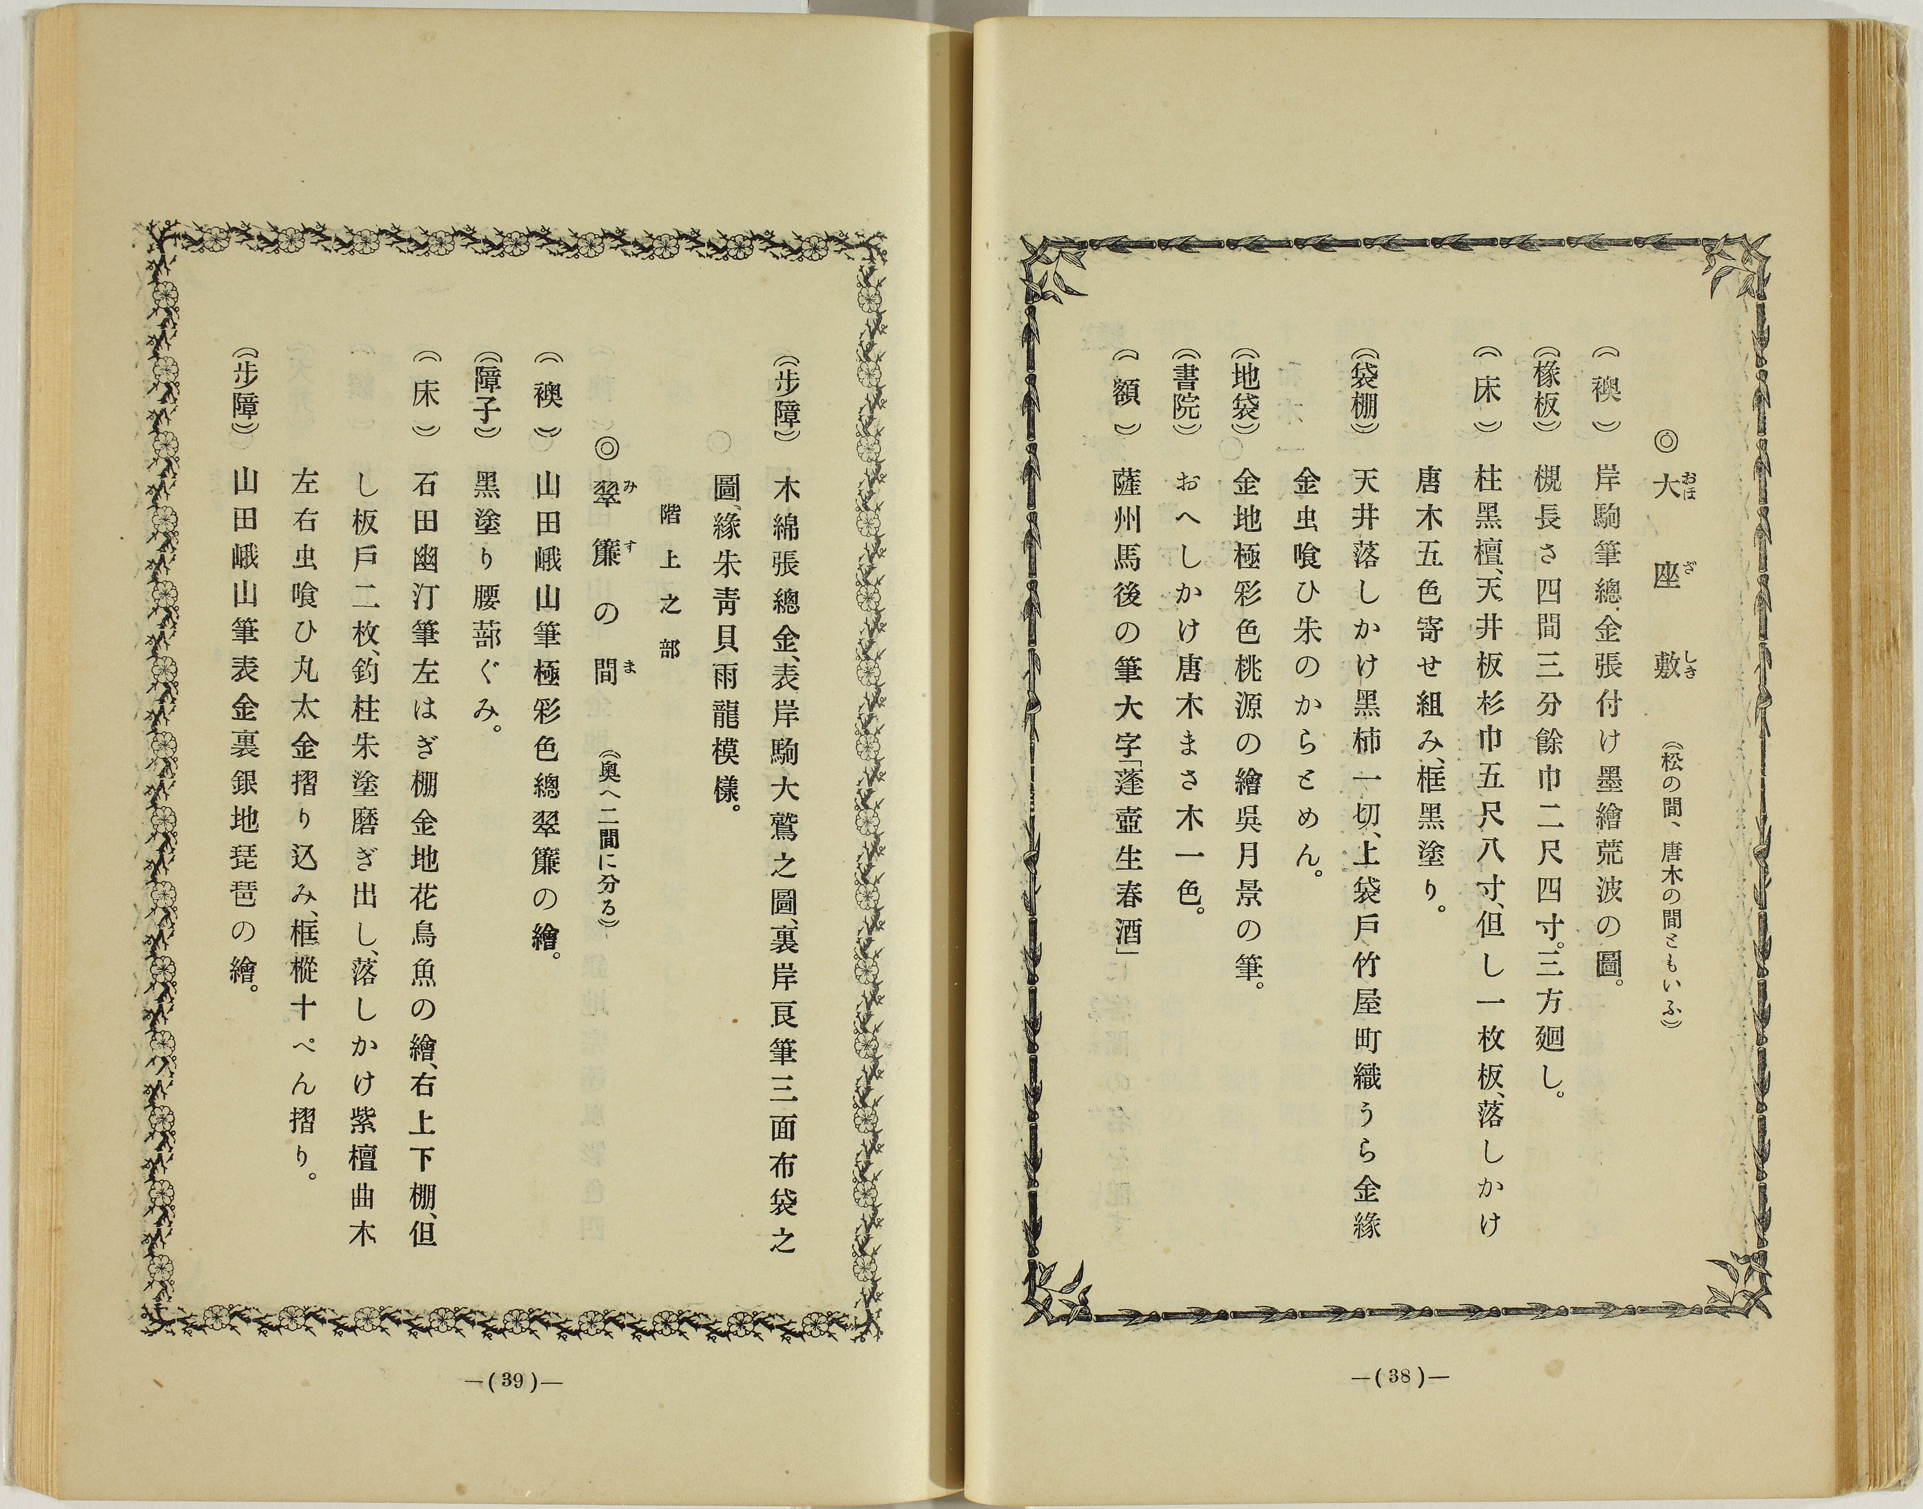 ◎大座敷（松の間、唐木の間ともいふ）
（襖）岸駒筆總金張付け墨繪荒波の圖。
（椽板）槻長さ四間三分餘巾二尺四寸。三方廻し。
（床）柱黑檀、天井板杉巾五尺八寸、但し一枚板、落しかけ
唐木五色寄せ組み、框黑塗り。
（袋棚）天井落しかけ黑柿一切、上袋戶竹屋町織うら金緣
金虫喰ひ朱のからとめん。
（地袋）金地極彩色桃源の繪吳月景の筆。
（書院）おへしかけ唐木まさ木一色。
（額）薩州馬後の筆大字「蓬壺生春酒」
—(38)—
（步障）木綿張總金、表岸駒大鷲之圖、裏岸良筆三面布袋之
圖、緣朱靑貝雨龍模樣。
階上之部
◎翠簾の間（奧へ二間に分る）
（襖）山田峨山筆極彩色總翠簾の繪。
（障子）黑塗り腰蔀ぐみ。
（床）石田幽汀筆左はぎ棚金地花鳥魚の繪、右上下棚、但
し板戶二枚、釣柱朱塗磨ぎ出し、落しかけ紫檀曲木
左右虫喰ひ丸太金摺り込み、框樅十ぺん摺り。
（步障）山田峨山筆表金裏銀地琵琶の繪。
—(39)—